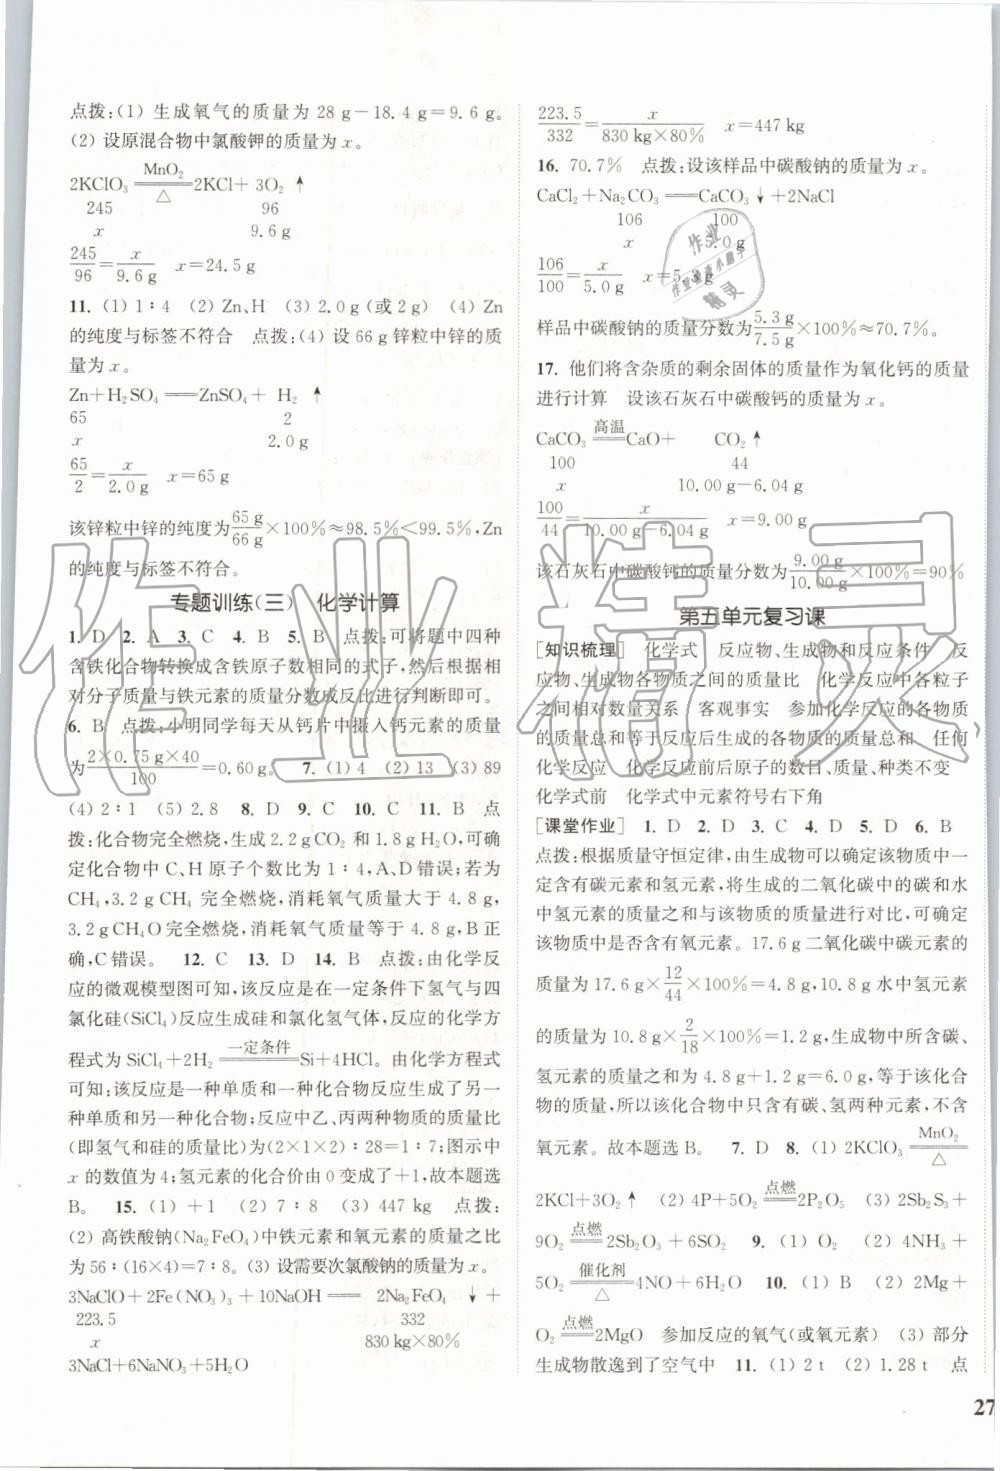 点拨:(1) 生成氧气的质量为 28 g－18.4 g＝9.6 g。
(2) 设原混合物中氯酸钾的质量为 x。
2KClO₃ =MnO₂/△= 2KCl＋3O₂↑
245 96
x 9.6 g
245/96＝x/9.6 g x＝24.5 g
11. (1) 1∶4 (2) Zn、H (3) 2.0 g(或 2 g) (4) Zn
的纯度与标签不符合 点拨:(4) 设 66 g 锌粒中锌的质
量为 x。
Zn＋H₂SO₄══ZnSO₄＋H₂↑
65 2
x 2.0 g
65/2＝x/2.0 g x＝65 g
该锌粒中锌的纯度为65 g/66 g×100%≈98.5%＜99.5%,Zn
的纯度与标签不符合。
专题训练(三) 化学计算
1. D 2. A 3. C 4. B 5. B 点拨:可将题中四种
含铁化合物转换成含铁原子数相同的式子,然后根据相
对分子质量与铁元素的质量分数成反比进行判断即可。
6. B 点拨:小明同学每天从钙片中摄入钙元素的质量
为2×0.75 g×40/100＝0.60 g。 7. (1) 4 (2) 13 (3) 89
(4) 2∶1 (5) 2.8 8. D 9. C 10. C 11. B 点
拨:化合物完全燃烧,生成 2.2 g CO₂ 和 1.8 g H₂O,可确
定化合物中 C、H 原子个数比为 1∶4,A、D 错误;若为
CH₄,3.2 g CH₄ 完全燃烧,消耗氧气质量大于 4.8 g,
3.2 g CH₄O 完全燃烧,消耗氧气质量等于 4.8 g,B 正
确,C 错误。 12. C 13. D 14. B 点拨:由化学反
应的微观模型图可知,该反应是在一定条件下氢气与四
氯化硅(SiCl₄)反应生成硅和氯化氢气体,反应的化学方
程式为 SiCl₄＋2H₂ =一定条件= Si＋4HCl。由化学方程式
可知:该反应是一种单质和一种化合物反应生成了另一
种单质和另一种化合物;反应中乙、丙两种物质的质量比
(即氢气和硅的质量比)为(2×1×2)∶28＝1∶7;图示中
x 的数值为 4;氢元素的化合价由 0 变成了＋1,故本题选
B。 15. (1)＋1 (2) 7∶8 (3) 447 kg 点拨:
(2) 高铁酸钠(Na₂FeO₄)中铁元素和氧元素的质量之比
为 56∶(16×4)＝7∶8。(3) 设需要次氯酸钠的质量为 x。
3NaClO＋2Fe(NO₃)₃＋10NaOH══2Na₂FeO₄↓＋
223.5 332
x 830 kg×80%
3NaCl＋6NaNO₃＋5H₂O
223.5/332＝x/830 kg×80% x＝447 kg
16. 70.7% 点拨:设该样品中碳酸钠的质量为 x。
CaCl₂＋Na₂CO₃══CaCO₃↓＋2NaCl
106 100
x 5.0 g
106/100＝x/5.0 g x＝5.3 g
样品中碳酸钠的质量分数为5.3 g/7.5 g×100%≈70.7%。
17. 他们将含杂质的剩余固体的质量作为氧化钙的质量
进行计算 设该石灰石中碳酸钙的质量为 x。
CaCO₃ =高温= CaO＋CO₂↑
100 44
x 10.00 g－6.04 g
100/44＝x/10.00 g－6.04 g x＝9.00 g
该石灰石中碳酸钙的质量分数为9.00 g/10.00 g×100%＝90%
第五单元复习课
[知识梳理] 化学式 反应物、生成物和反应条件 反
应物、生成物各物质之间的质量比 化学反应中各粒子
之间的相对数量关系 客观事实 参加化学反应的各物质
的质量总和等于反应后生成的各物质的质量总和 任何
化学反应 化学反应前后原子的数目、质量、种类不变
化学式前 化学式中元素符号右下角
[课堂作业] 1. D 2. D 3. C 4. D 5. D 6. B
点拨:根据质量守恒定律,由生成物可以确定该物质中一
定含有碳元素和氢元素,将生成的二氧化碳中的碳和水
中氢元素的质量之和与该物质的质量进行对比,可确定
该物质中是否含有氧元素。17.6 g 二氧化碳中碳元素的
质量为 17.6 g×12/44×100%＝4.8 g,10.8 g 水中氢元素
的质量为 10.8 g×2/18×100%＝1.2 g,生成物中所含碳、
氢元素的质量之和为 4.8 g＋1.2 g＝6.0 g,等于该化合
物的质量,所以该化合物中只含有碳、氢两种元素,不含
氧元素。故本题选 B。 7. D 8. (1) 2KClO₃ =MnO₂/△=
2KCl＋3O₂↑ (2) 4P＋5O₂ =点燃= 2P₂O₅ (3) 2Sb₂S₃＋
9O₂ =点燃= 2Sb₂O₃＋6SO₂ 9. (1) O₂ (2) 4NH₃＋
5O₂ =催化剂/△= 4NO＋6H₂O 10. (1) B (2) 2Mg＋
O₂ =点燃= 2MgO 参加反应的氧气(或氧元素) (3) 部分
生成物散逸到了空气中 11. (1) 2 t (2) 1.28 t 点
27
作业精灵